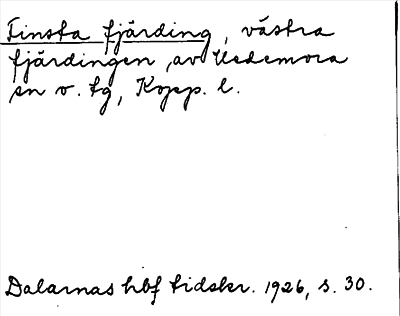 Tinsta fjärding, västra
fjärdingen av Hedemora
sn o. tg, Kopp. l.
Dalarnas hbf tidskr. 1926, s. 30.